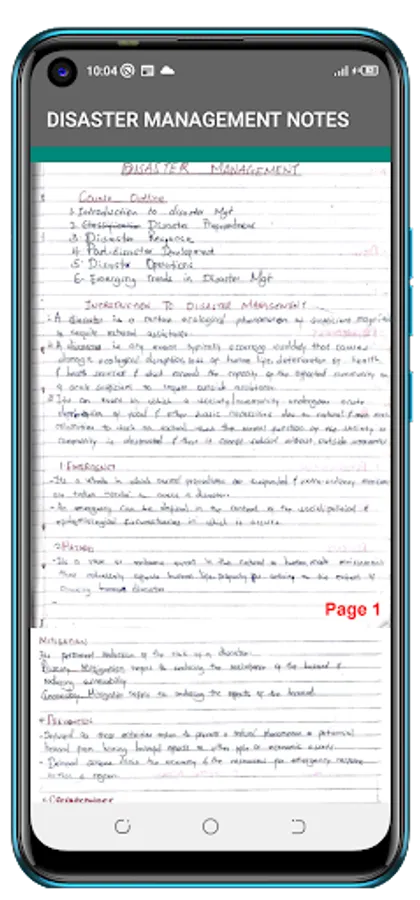 10:04
DISASTER MANAGEMENT NOTES
DISASTER MANAGEMENT
Course Outline
1. Introduction to disaster Mgt
2. Disaster Preparedness
3. Disaster Response
4. Post-disaster Development
5. Disaster Operations
6. Emerging trends in Disaster Mgt
INTRODUCTION TO DISASTER MANAGEMENT
A disaster is a serious ecological phenomenon of sufficient magnitude
to require external assistance
is any event typically occurring suddenly that causes
damage, ecological disruption, loss of human life, deterioration of health
& health services & which exceeds the capacity of the affected community on
a scale sufficient to require outside assistance
Its an event in which a society/community undergoes acute
of food & other basic necessities due to natural &
to such an extent that the normal function of the society or
community is disrupted & that it cannot without outside
1. EMERGENCY
- Its a state in which normal procedures are suspended & extra-ordinary measures
are taken to a disaster
- An emergency can be defined in the context of the social, political &
epidemiological circumstances in which it occurs
2. HAZARD
- Its a rare or extreme event in the natural or human made environment
that adversely affects human life, property or activity to the extent of
causing disaster
Page 1
MITIGATION
Its permanent reduction of the risk of a disaster
Primary Mitigation refers to reducing the resistance of the hazard &
reducing vulnerability
Secondary Mitigation refers to reducing the effects of the hazard
PREVENTION
- Defined as those activities taken to prevent a natural phenomenon or potential
hazard from having harmful effects on either people or economic assets
- Delayed the economy & the resources for emergency response
within a region